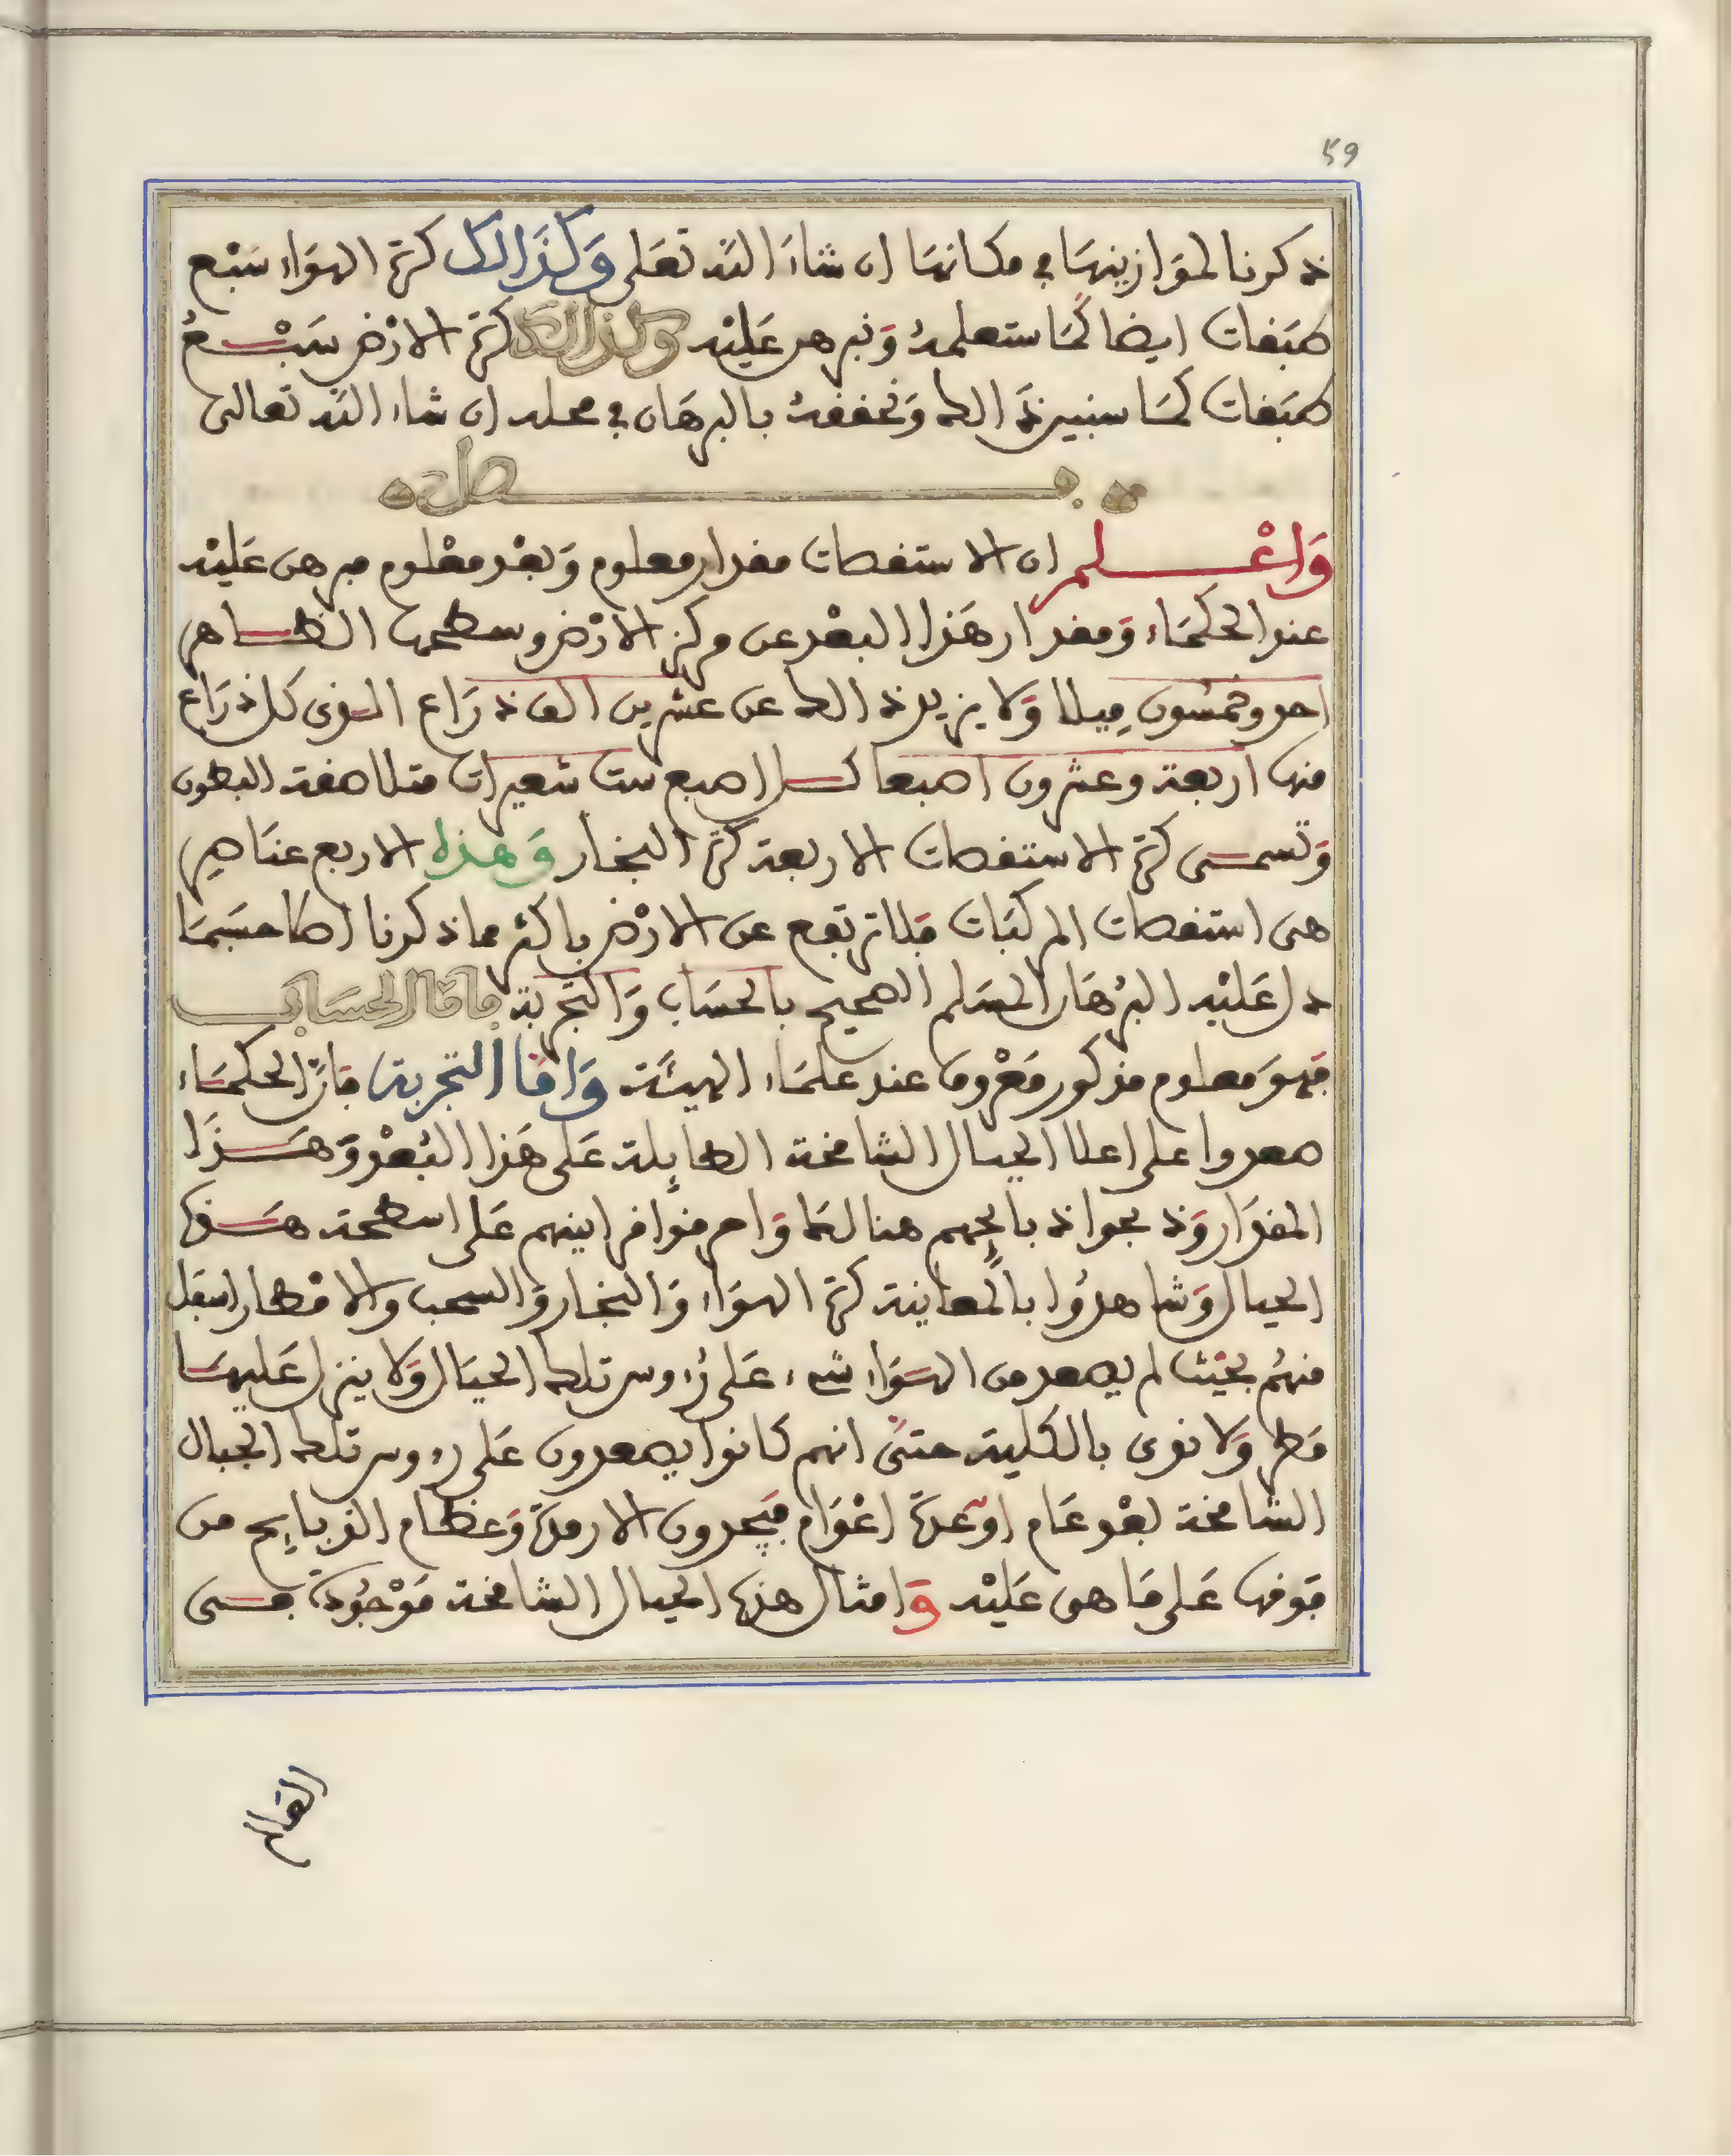 59
ذكرنا لموازينها في مكانها ان شاء الله تعلى وكذالك كرة الهواء سبع
طبقات ايضا كما ستعلمه ونبرهن عليه وكذالك كرة الارض سبع
طبقات كما سنبين ذالك ونحققه بالبرهان في محله ان شاء الله تعالى
فصل
واعلم ان الاستقصات مقدار معلوم وبعد معلوم مبرهن عليه
عند الحكماء ومقدار هذا البعد عن مركز الارض وسطحها الظاهر
احد وخمسون ميلا ولا يزيد ذالك عن عشرين الف ذراع الذى كل ذراع
منها اربعة وعشرون اصبعا كل اصبع ست شعيرات متلاصقة البطون
وتسمى كرة الاستقصات الاربعة كرة البخار وهذه الاربع عناصر
هى استقصات المركبات فلا ترتفع عن الارض باكثر مما ذكرنا اصلا حسبما
دل عليه البرهان المسلم الصحيح بالحساب والتجربة فاما الحساب
فهو معلوم مذكور معروف عند علماء الهيئة واما التجربة فان الحكماء
صعدوا على اعلا الجبال الشامخة الطايلة على هذا البعد وهذا
المقدار وذبحوا ذبايحهم هنالك واحرقوا قرابينهم على اسطحة هذه
الجبال وشاهدوا بالمعاينة كرة الهواء والبخار والسحب والامطار اسفل
منهم بحيث لم يصعد من الهواء شىء على رءوس تلك الجبال ولا ينزل عليها
مطر ولا ندى بالكلية حتى انهم كانوا يصعدون على رءوس تلك الجبال
الشامخة بعد عام او عدة اعوام فيجدون الارمدة وعظام الذبايح من
فوقها على ما هى عليه وامثال هذه الجبال الشامخة موجودة فى
القمر